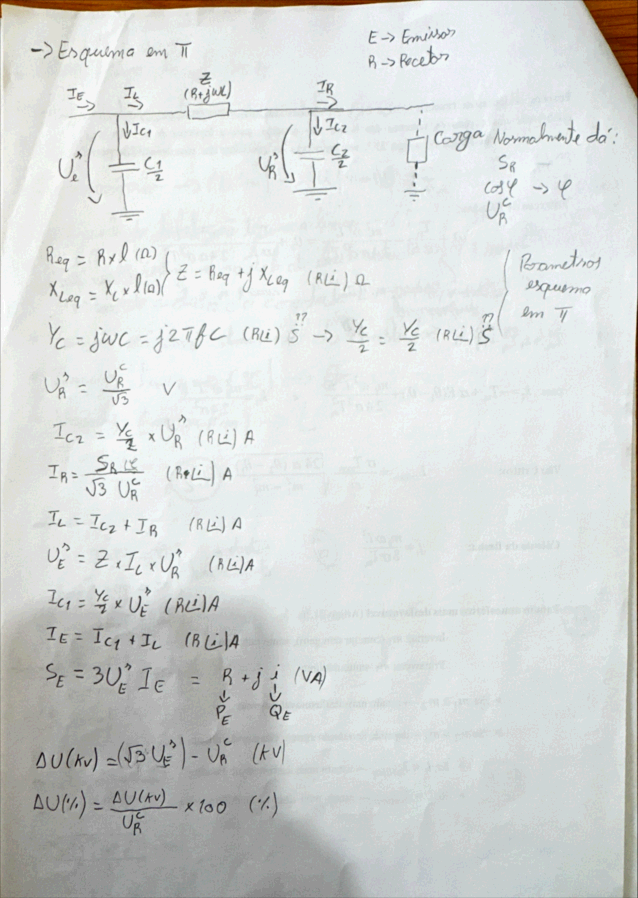 -> Esquema em π
E -> Emissor
R -> Recetor
I_E I_L Z I_R
(R+jωL)
↓I_C1 ↓I_C2
U_e^n C1/2 U_R^n C2/2 Carga
Normalmente dá:
S_R
cosφ -> φ
U_R^C
Req = R×l (Ω)
X_Leq = X_L×l(Ω) } Z = Req + j X_Leq (R∠i) Ω
Parametros
esquema
em π
Y_C = jωC = j2πfC (R∠i) S?? -> Y_C/2 = Y_C/2 (R∠i) S??
U_R^n = U_R^C/√3 V
I_C2 = Y_C/2 × U_R^n (R∠i) A
I_R = S_R∠φ/(√3 U_R^C) (R∠i) A
I_L = I_C2 + I_R (R∠i) A
U_E^n = Z × I_L × U_R^n (R∠i)A
I_C1 = Y_C/2 × U_E^n (R∠i)A
I_E = I_C1 + I_L (R∠i)A
S_E = 3U_E^n I_E = R + j i (VA)
↓ ↓
P_E Q_E
ΔU(kV) = (√3·U_E^n) - U_R^C (kV)
ΔU(%) = ΔU(kV)/U_R^C × 100 (%)